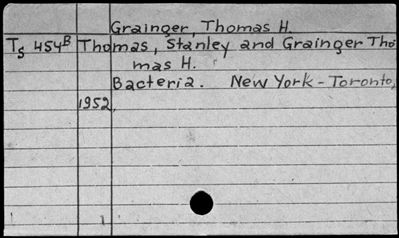 Grainger, Thomas H.
Ts 454B Thomas, Stanley and Grainger Tho
mas H.
Bacteria. New York - Toronto,
1952.